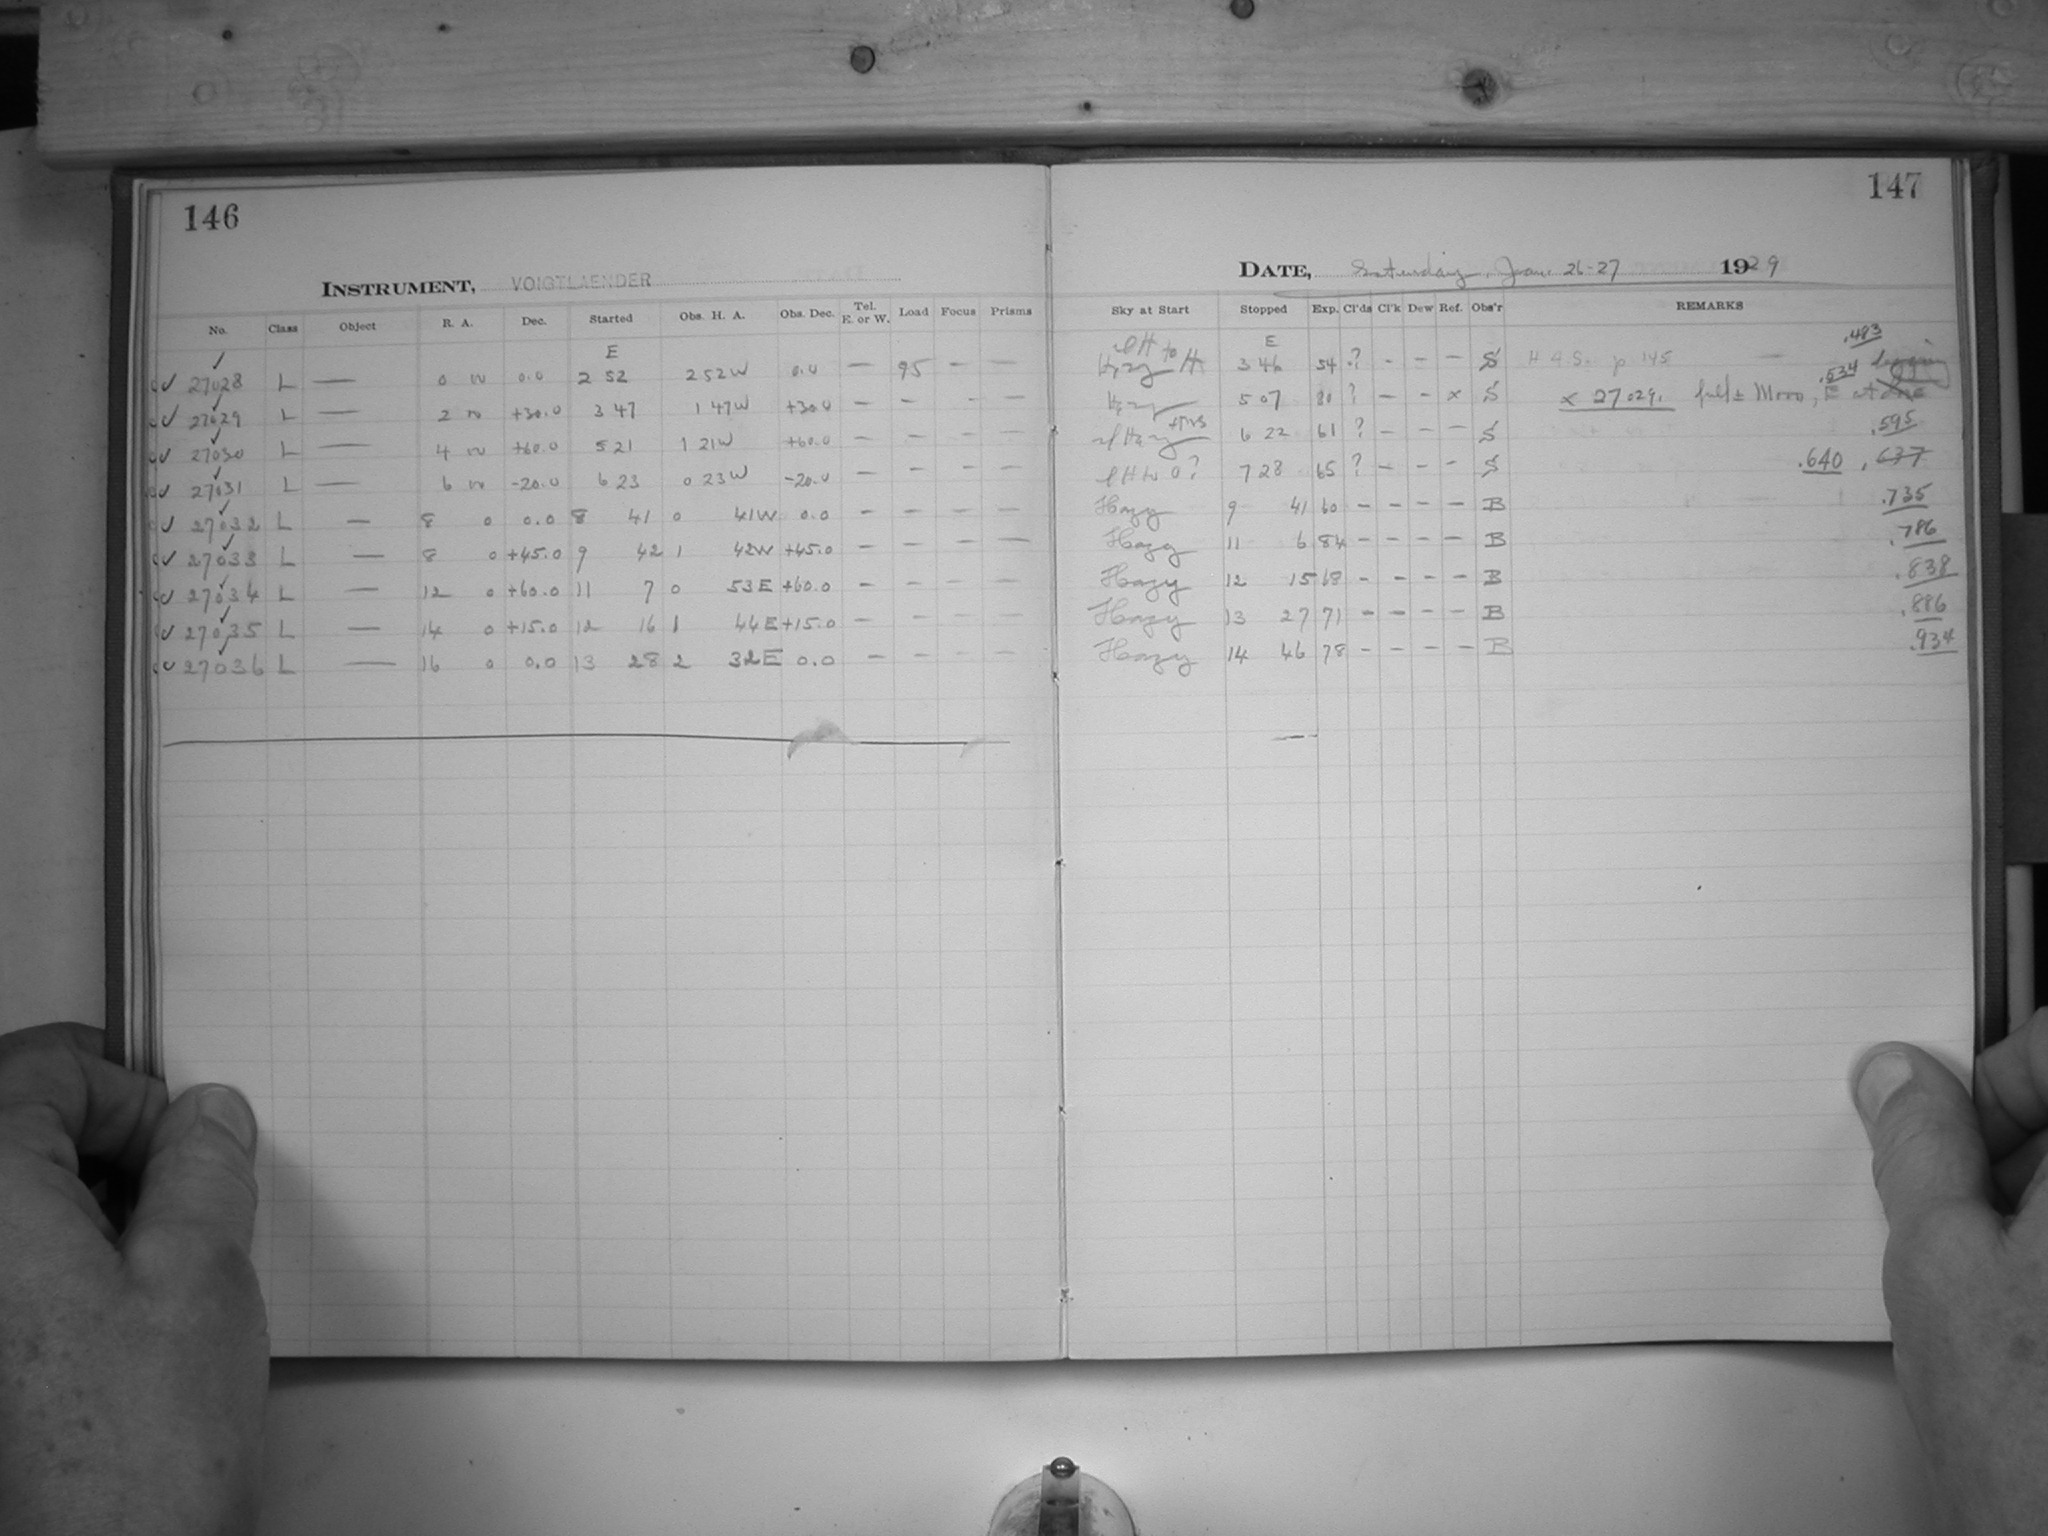 146
INSTRUMENT, VOIGTLAENDER
No. Class Object R. A. Dec. Started Obs. H. A. Obs. Dec. Tel. E. or W. Load Focus Prisms
E
27028 L — 0 0.0 2 52 2 52W 0.0 — 95 — —
27029 L — 2 +30.0 3 47 1 47W +30.0 — — — —
27030 L — 4 +60.0 5 21 1 21W +60.0 — — — —
27031 L — 6 -20.0 6 23 0 23W -20.0 — — — —
27032 L — 8 0 0.0 8 41 0 41W 0.0 — — — —
27033 L — 8 0 +45.0 9 42 1 42W +45.0 — — — —
27034 L — 12 0 +60.0 11 7 0 53E +60.0 — — — —
27035 L — 14 0 +15.0 12 16 1 44E +15.0 — — — —
27036 L — 16 0 0.0 13 28 2 32E 0.0 — — — —
147
DATE, Saturday, Jan. 26-27 1929
Sky at Start Stopped Exp. Cl'ds Cl'k Dew Ref. Obs'r REMARKS
E .483
3 46 54 ? - - - S H.A.S. p 145
.534
Hazy 5 07 80 ? - - x S x 27029. full ± Moon, E at
6 22 61 ? - - - S .595
7 28 65 ? - - - S .640 .637
Hazy 9 41 60 - - - - B .735
Hazy 11 6 84 - - - - B .786
Hazy 12 15 68 - - - - B .838
Hazy 13 27 71 - - - - B .886
Hazy 14 46 78 - - - - B .934